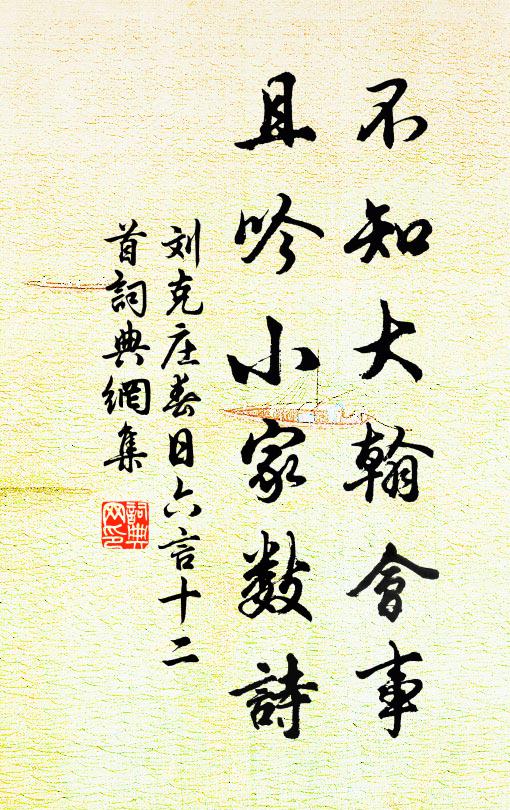 不知大翰會事
且吟小家数詩
刘克庄春日六言十二
首詞典網集
詞典
网印